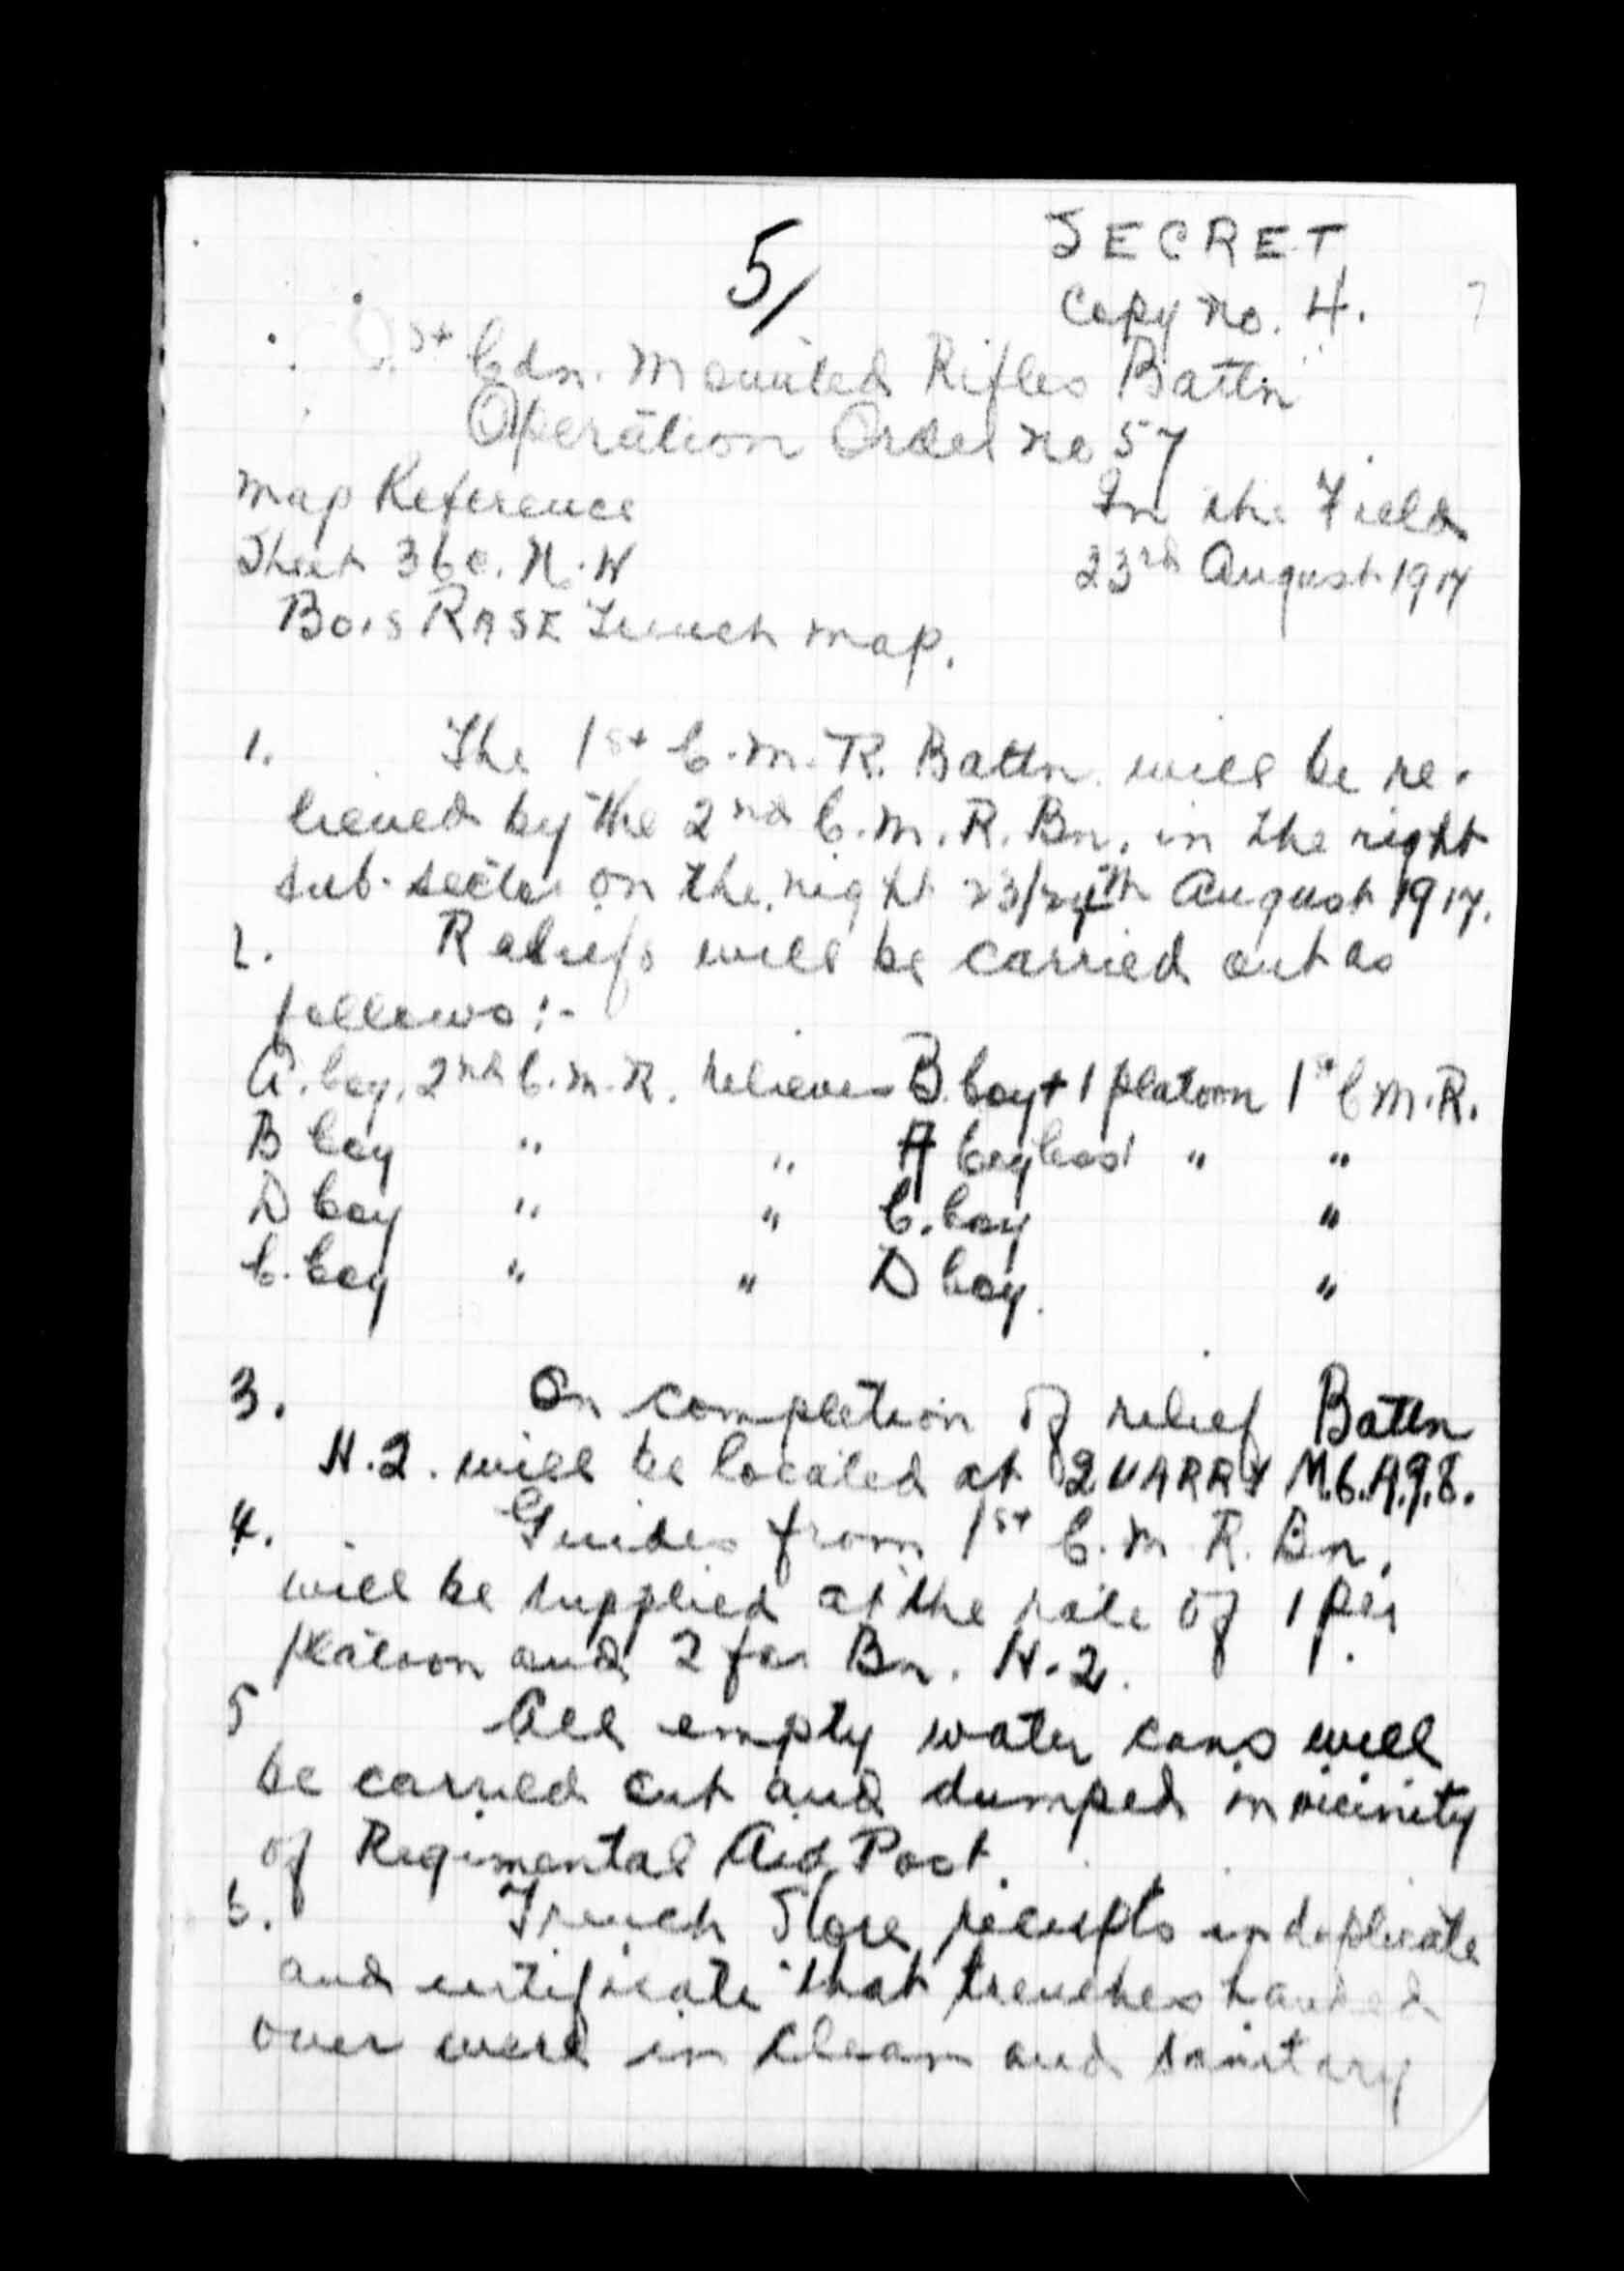 5/
SECRET
Copy no. 4.
1st Cdn. Mounted Rifles Battn
Operation Order no 57
Map Reference
In the Field
Sheet 36c. N.W
23rd August 1917
BOIS RASE Trench map.
1. The 1st C.M.R. Battn. will be re-
lieved by the 2nd C.M.R. Bn. in the right
sub-sector on the night 23/24th August 1917.
2. Reliefs will be carried out as
follows:-
A. Coy. 2nd C.M.R. relieves B. Coy + 1 platoon 1st C.M.R.
B Coy " " A Coy less 1 " "
D Coy " " C. Coy "
C. Coy " " D Coy. "
3. On completion of relief Battn
H.Q. will be located at QUARRY
4. Guides from 1st C.M.R. Bn.
will be supplied at the rate of 1 per
platoon and 2 for Bn. H.Q.
5 All empty water cans will
be carried out and dumped in vicinity
of Regimental Aid Post.
6. Trench Store receipts in duplicate
and certificate that trenches handed
over were in clean and sanitary